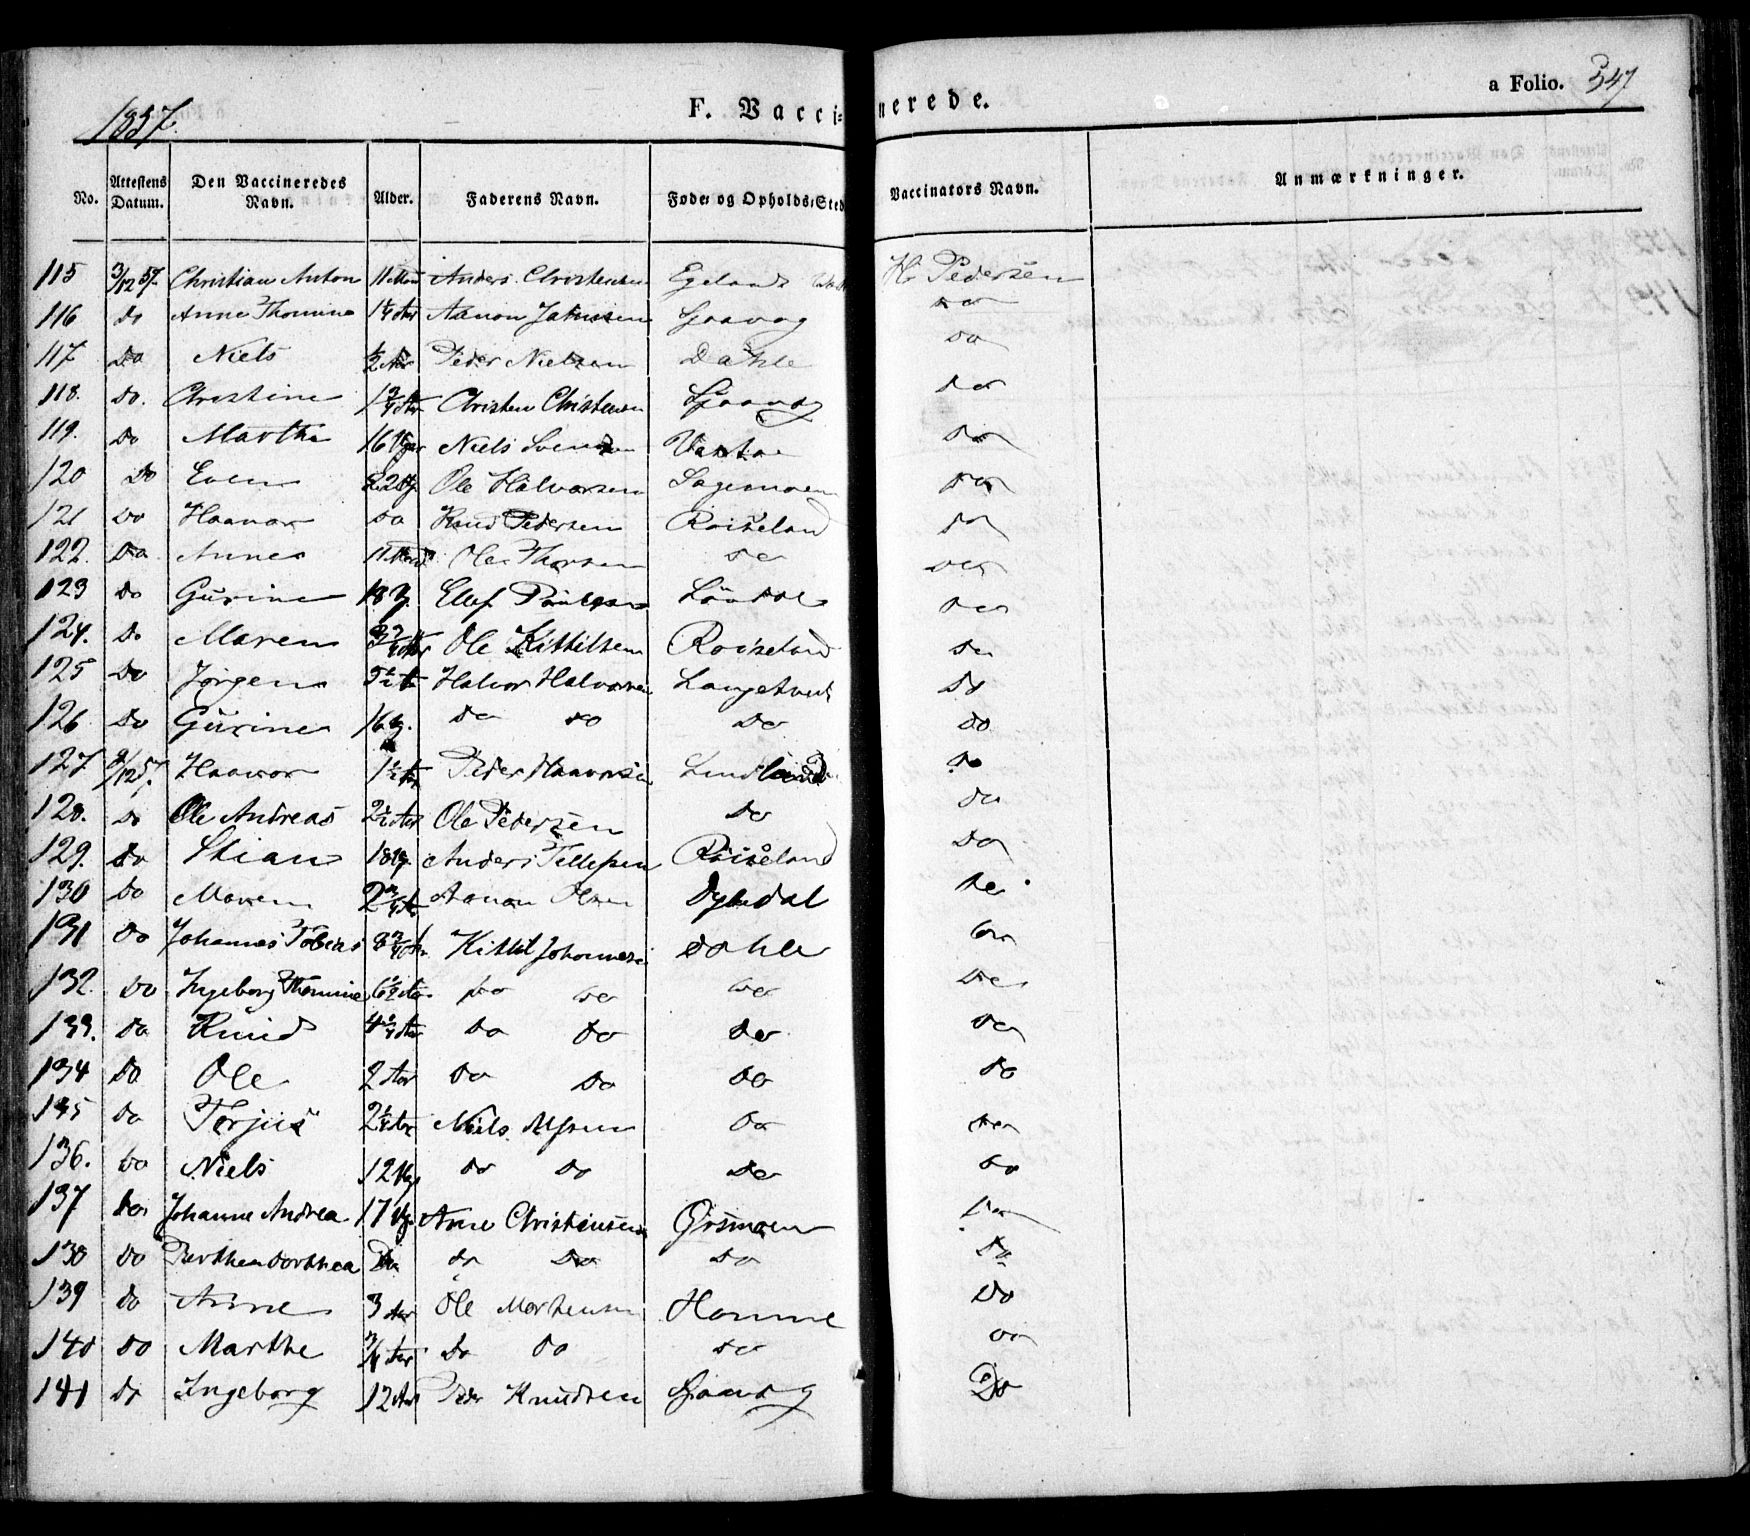 1857.
F. Vaccinerede.
a Folio. 347
No. Attestens Datum. Den Vaccineredes Navn. Alder. Faderens Navn. Føde- og Opholds-Sted Vaccinators Navn. Anmærkninger.
115 3/12 57. Christian Anton 11 Anders Christensen Egeland H. Pedersen
116 do Anne Thomine 1¼ Aar Aanon Jensen do
117 Do Niels ½ Aar Peder Nielsen Dahle Do
118. Do. Christine 1¾ Aar Christen Christensen Do
119. Do Marthe 16 Niels Svendsen Do
120 Do Even 22 Ole Halvorsen Sagemoen Do
121 Do Haavor Do Knud Pedersen Roiseland Do
122. Do. Anne 11 Ole Thorsen Do Do
123 Do Gurine 18 Ellef Do
124. Do Maren Ole Kittilsen Roiseland Do
125 Do Jørgen 5½ Halvor Halvorsen Langetvedt Do
126 Do Gurine 16 Do Do Do Do
127 9/12 57. Haavor 1½ Peder Haavorsen Lindland Do
128. Do Ole Andreas 2½ Aar Ole Pedersen Do Do
129. Do Stian 18 Anders Tellefsen Roiseland Do
130 Do Maren 2¾ Aar Aanon Olsen Dybdal Do
131 Do Johannes Tobias 8¾ Kittel Johannesen Dahle Do
132. Do Ingeborg Thomine 6½ Aar Do Do Do Do
133. Do Knud 4¼ Aar Do Do Do Do
134 Do Ole 2 Aar Do Do Do Do
135 Do Terjus 2¼ Aar Niels Do Do
136. Do Niels 12 Do Do Do Do
137 Do Johanne Andrea 17 Arne Christensen Øismoen Do
138 Do Berthe Dorthea Do Do Do Do Do
139 Do Anne 3 Aar Ole Mortensen Homme Do
140 Do Marthe ¾ Aar Do Do Do Do
141 Do Ingeborg 12 Aar Peder Knudsen Do